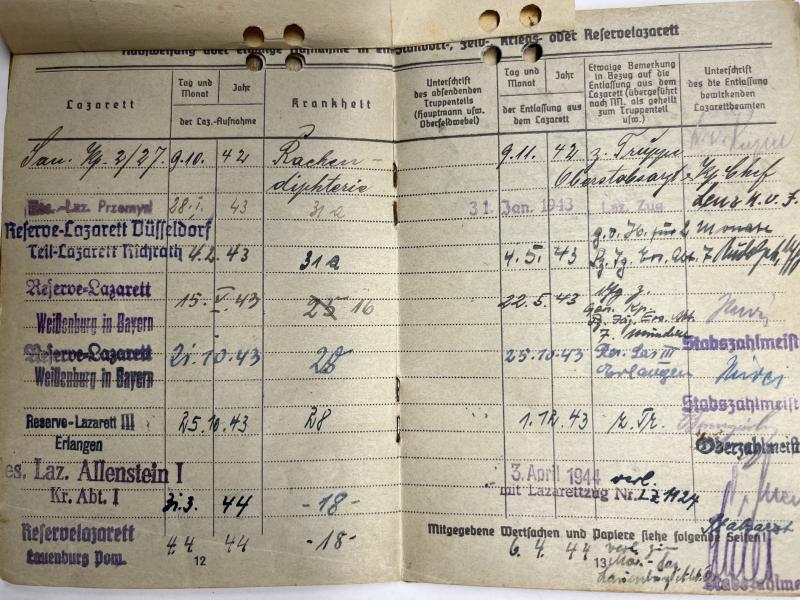 Nachweisung über etwaige Aufnahme in ein Standort-, Feld-, Kriegs- oder Reservelazarett
Lazarett
Tag und Monat
Jahr
der Laz.-Aufnahme
Krankheit
Unterschrift
des absendenden
Truppenteils
(Hauptmann usw.
Oberfeldwebel)
Tag und Monat
Jahr
der Entlassung aus
dem Lazarett
Etwaige Bemerkung
in Bezug auf die
Entlassung aus dem
Lazarett (übergeführt
nach NN. als geheilt
zum Truppenteil
u. s. w.)
Unterschrift des
die Entlassung
bewirkenden
Lazarettbeamten
San. Kp. 2/27. 9.10. 42 Rachen-
diphterie
9.11. 42 z. Truppe
Oberstabsarzt
Res.-Laz. Przemysl 28.1. 43 31a
31. Jan. 1943 Laz. Zug
Reserve-Lazarett Düsseldorf
Teil-Lazarett Richrath 4.2. 43 31a
g.v. H. für 2 Monate
4.5. 43
Reserve-Lazarett
Weißenburg in Bayern
15. V. 43 25 16
22.5 43
Stabszahlmeist
Reserve-Lazarett
Weißenburg in Bayern
21.10.43 28
25.10.43 Res. Laz III
Erlangen
Stabszahlmeist
Reserve-Lazarett III
Erlangen
25.10.43 28
1.12.43 z. Tr.
Oberzahlmeist
es. Laz. Allenstein I
Kr. Abt. I
31.3. 44 -18-
3. April 1944 verl.
mit Lazarettzug Nr.
Reservelazarett
Lauenburg Pom.
4.4. 44 -18-
Mitgegebene Wertsachen und Papiere siehe folgende Seiten!
6. 4. 44 verl.
Stabszahlme
12
13